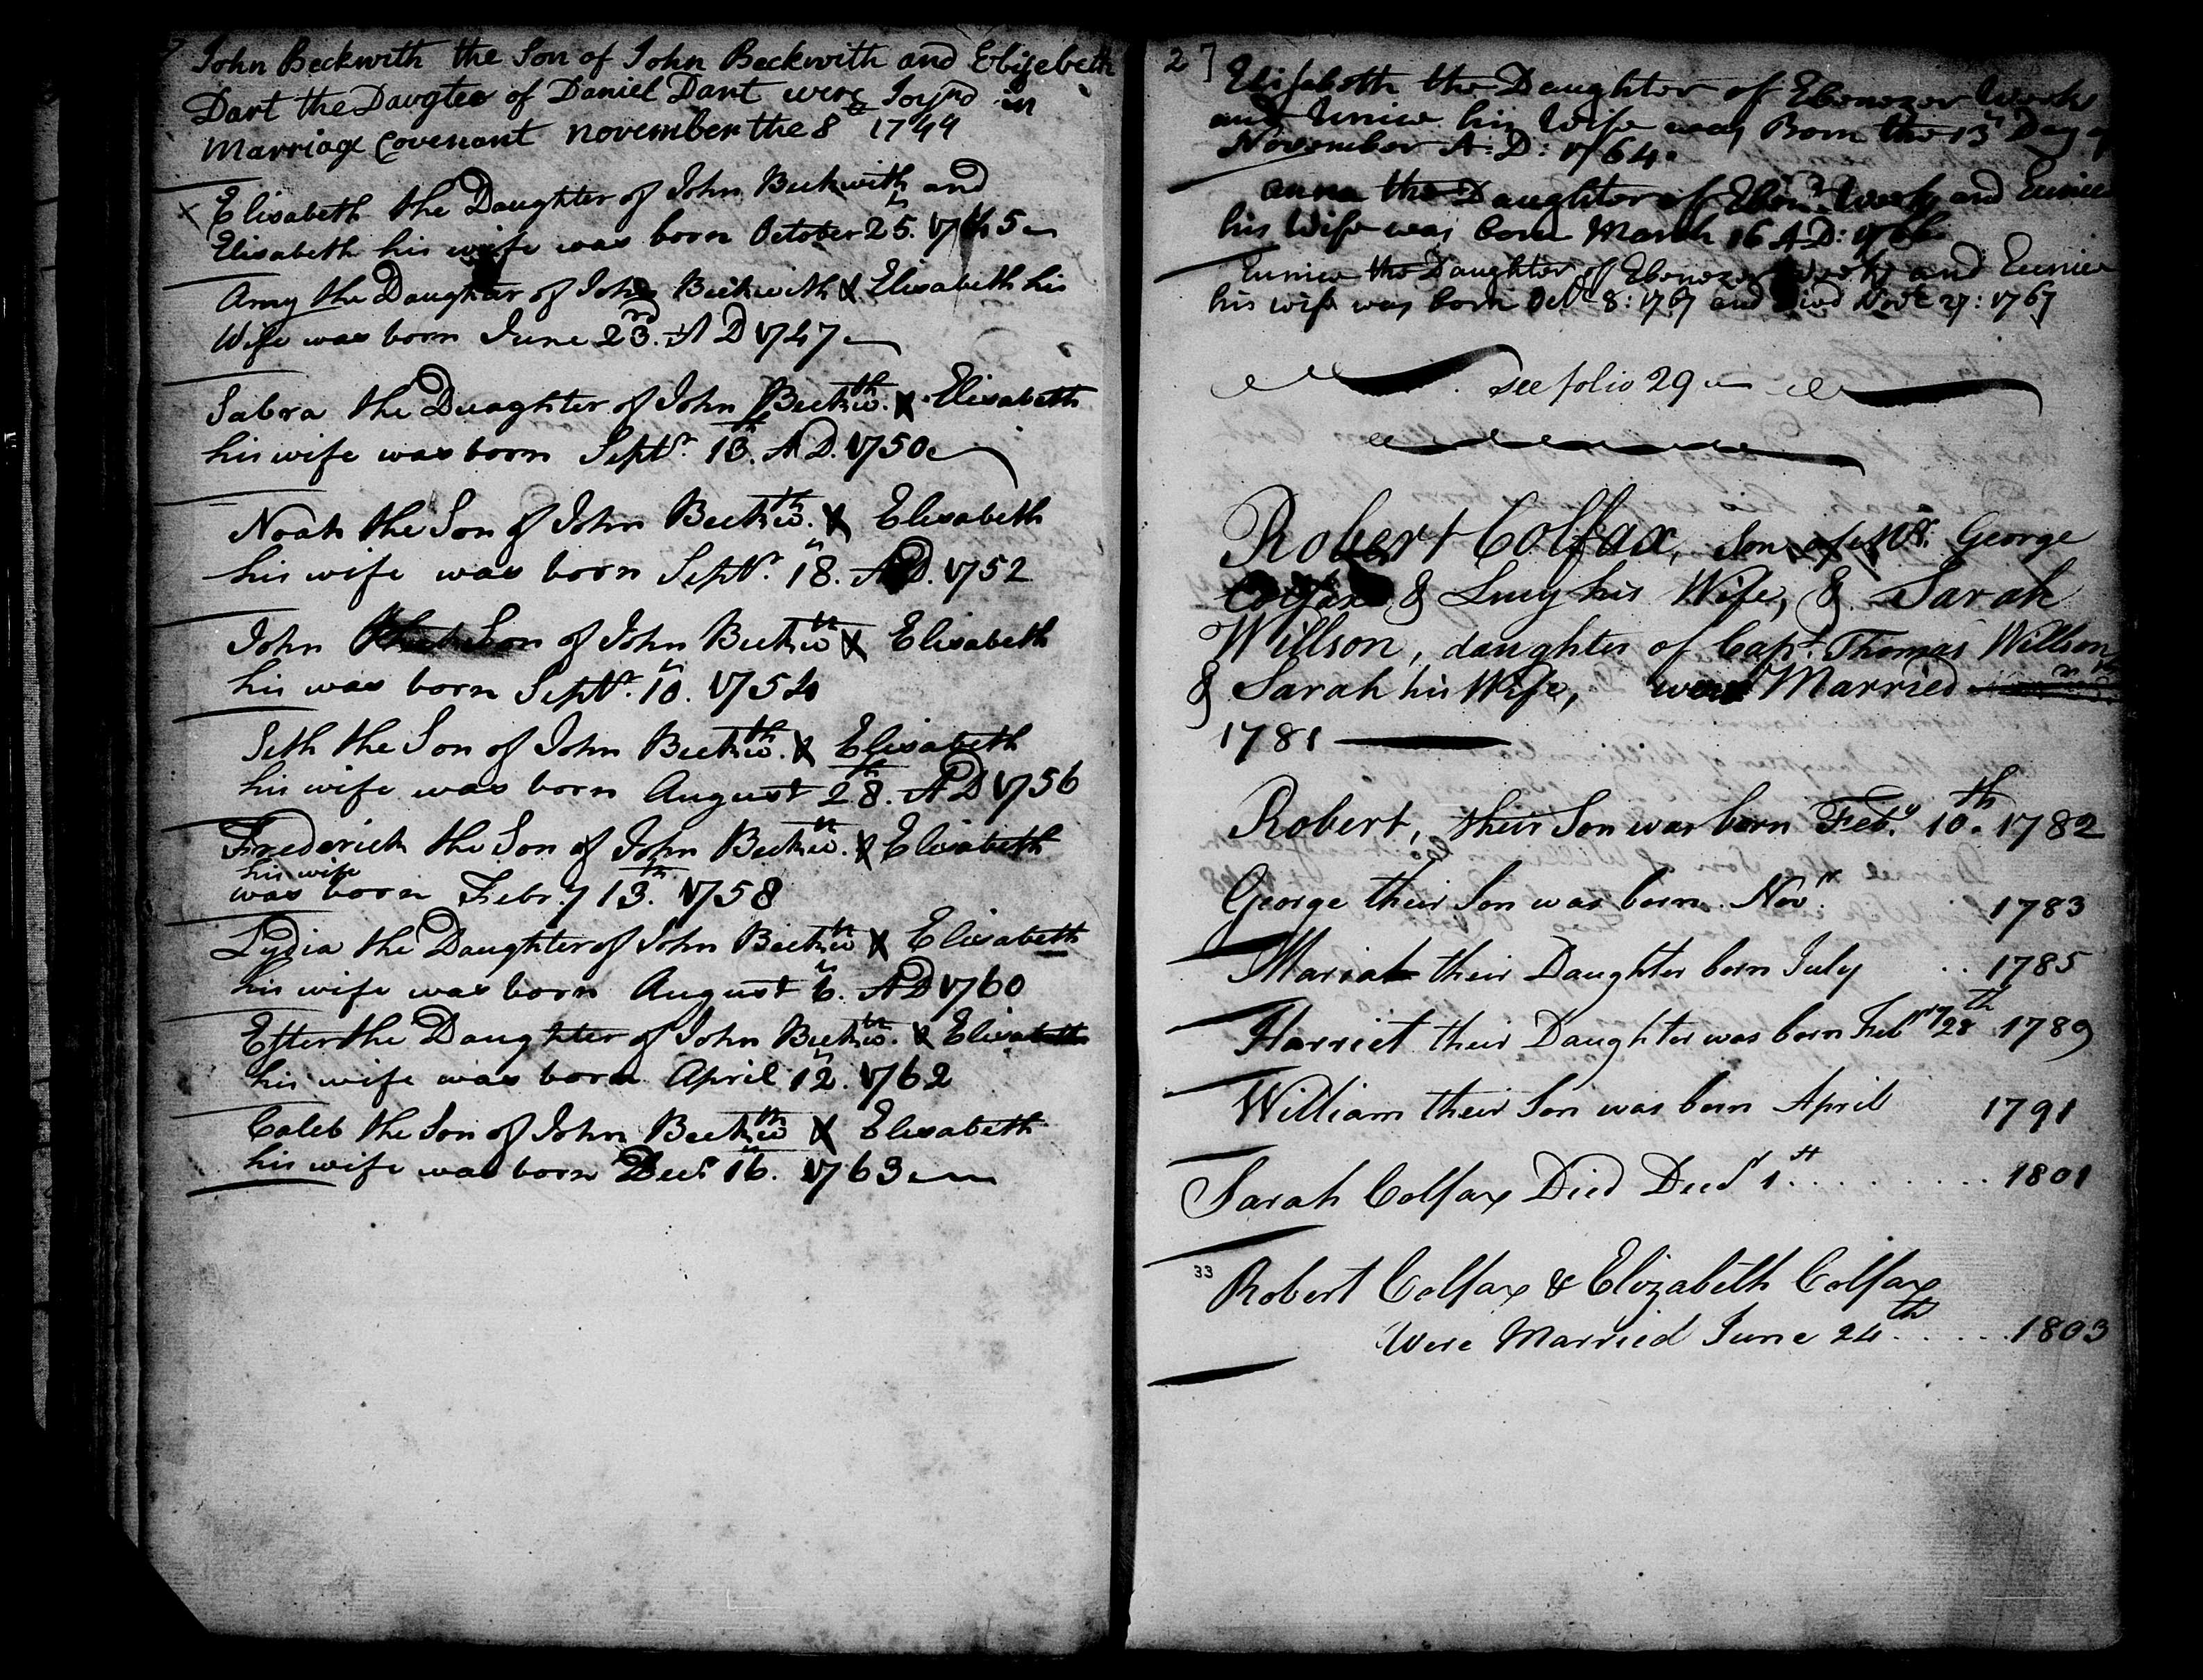 John Beckwith the Son of John Beckwith and Elizebeth
Dart the Daugter of Daniel Dart were Joynd in
Marriage Covenant november the 8th 1744
x Elisabeth the Daughter of John Beckwith and
Elisabeth his wife was born October 25th. 1745
Amy the Daughter of John Beckwith & Elisabeth his
Wife was born June 23rd. A D 1747
Sabra the Duaghter of John Beckwth. & Elisabeth
his wife was born Septr. 13th. A.D. 1750
Noah the Son of John Beckwth. & Elisabeth
his wife was born Septr. 18th. A.D. 1752
John the Son of John Beckwth & Elisabeth
his was born Septr. 10th. 1754
Seth the Son of John Beckwth. & Elisabeth
his wife was born August 28th. A D 1756
Frederick the Son of John Beckwth. & Elisabeth
his wife
was born Febry 13th. 1758
Lydia the Daughter of John Beckwth & Elisabeth
his wife was born August 6th. A D 1760
Esther the Daughter of John Beckwth. & Elisabeth
his wife was born April 12th. 1762
Caleb the Son of John Beckwth & Elisabeth
his wife was born Decr 16th. 1763
27
Elisabeth the Daughter of Ebenezer Weeks
and Eunice his Wife was Born the 13th Day of
November A:D: 1764.
anna the Daughter of Ebenr. Weeks and Eunice
his Wife was born March 16 A D: 1766
Eunice the Daughter of Ebenezer Weeks and Eunice
his wife was born Octr. 8: 1767 and Died Novr 27: 1767
see folio 29
Robert Colfax, Son of Mr. George
Colfax & Lucy his Wife, & Sarah
Willson, daughter of Capt. Thomas Willson
& Sarah his Wife, were Married
1781
Robert, their Son was born Feby. 10th. 1782
George their Son was born Novr. 1783
Mariah their Daughter born July .. 1785
Harriet their Daughter was born Febry 28th 1789
William their Son was born April 1791
Sarah Colfax Died Decr 1st......... 1801
33
Robert Colfax & Elizabeth Colfax
Were Married June 24th..... 1803